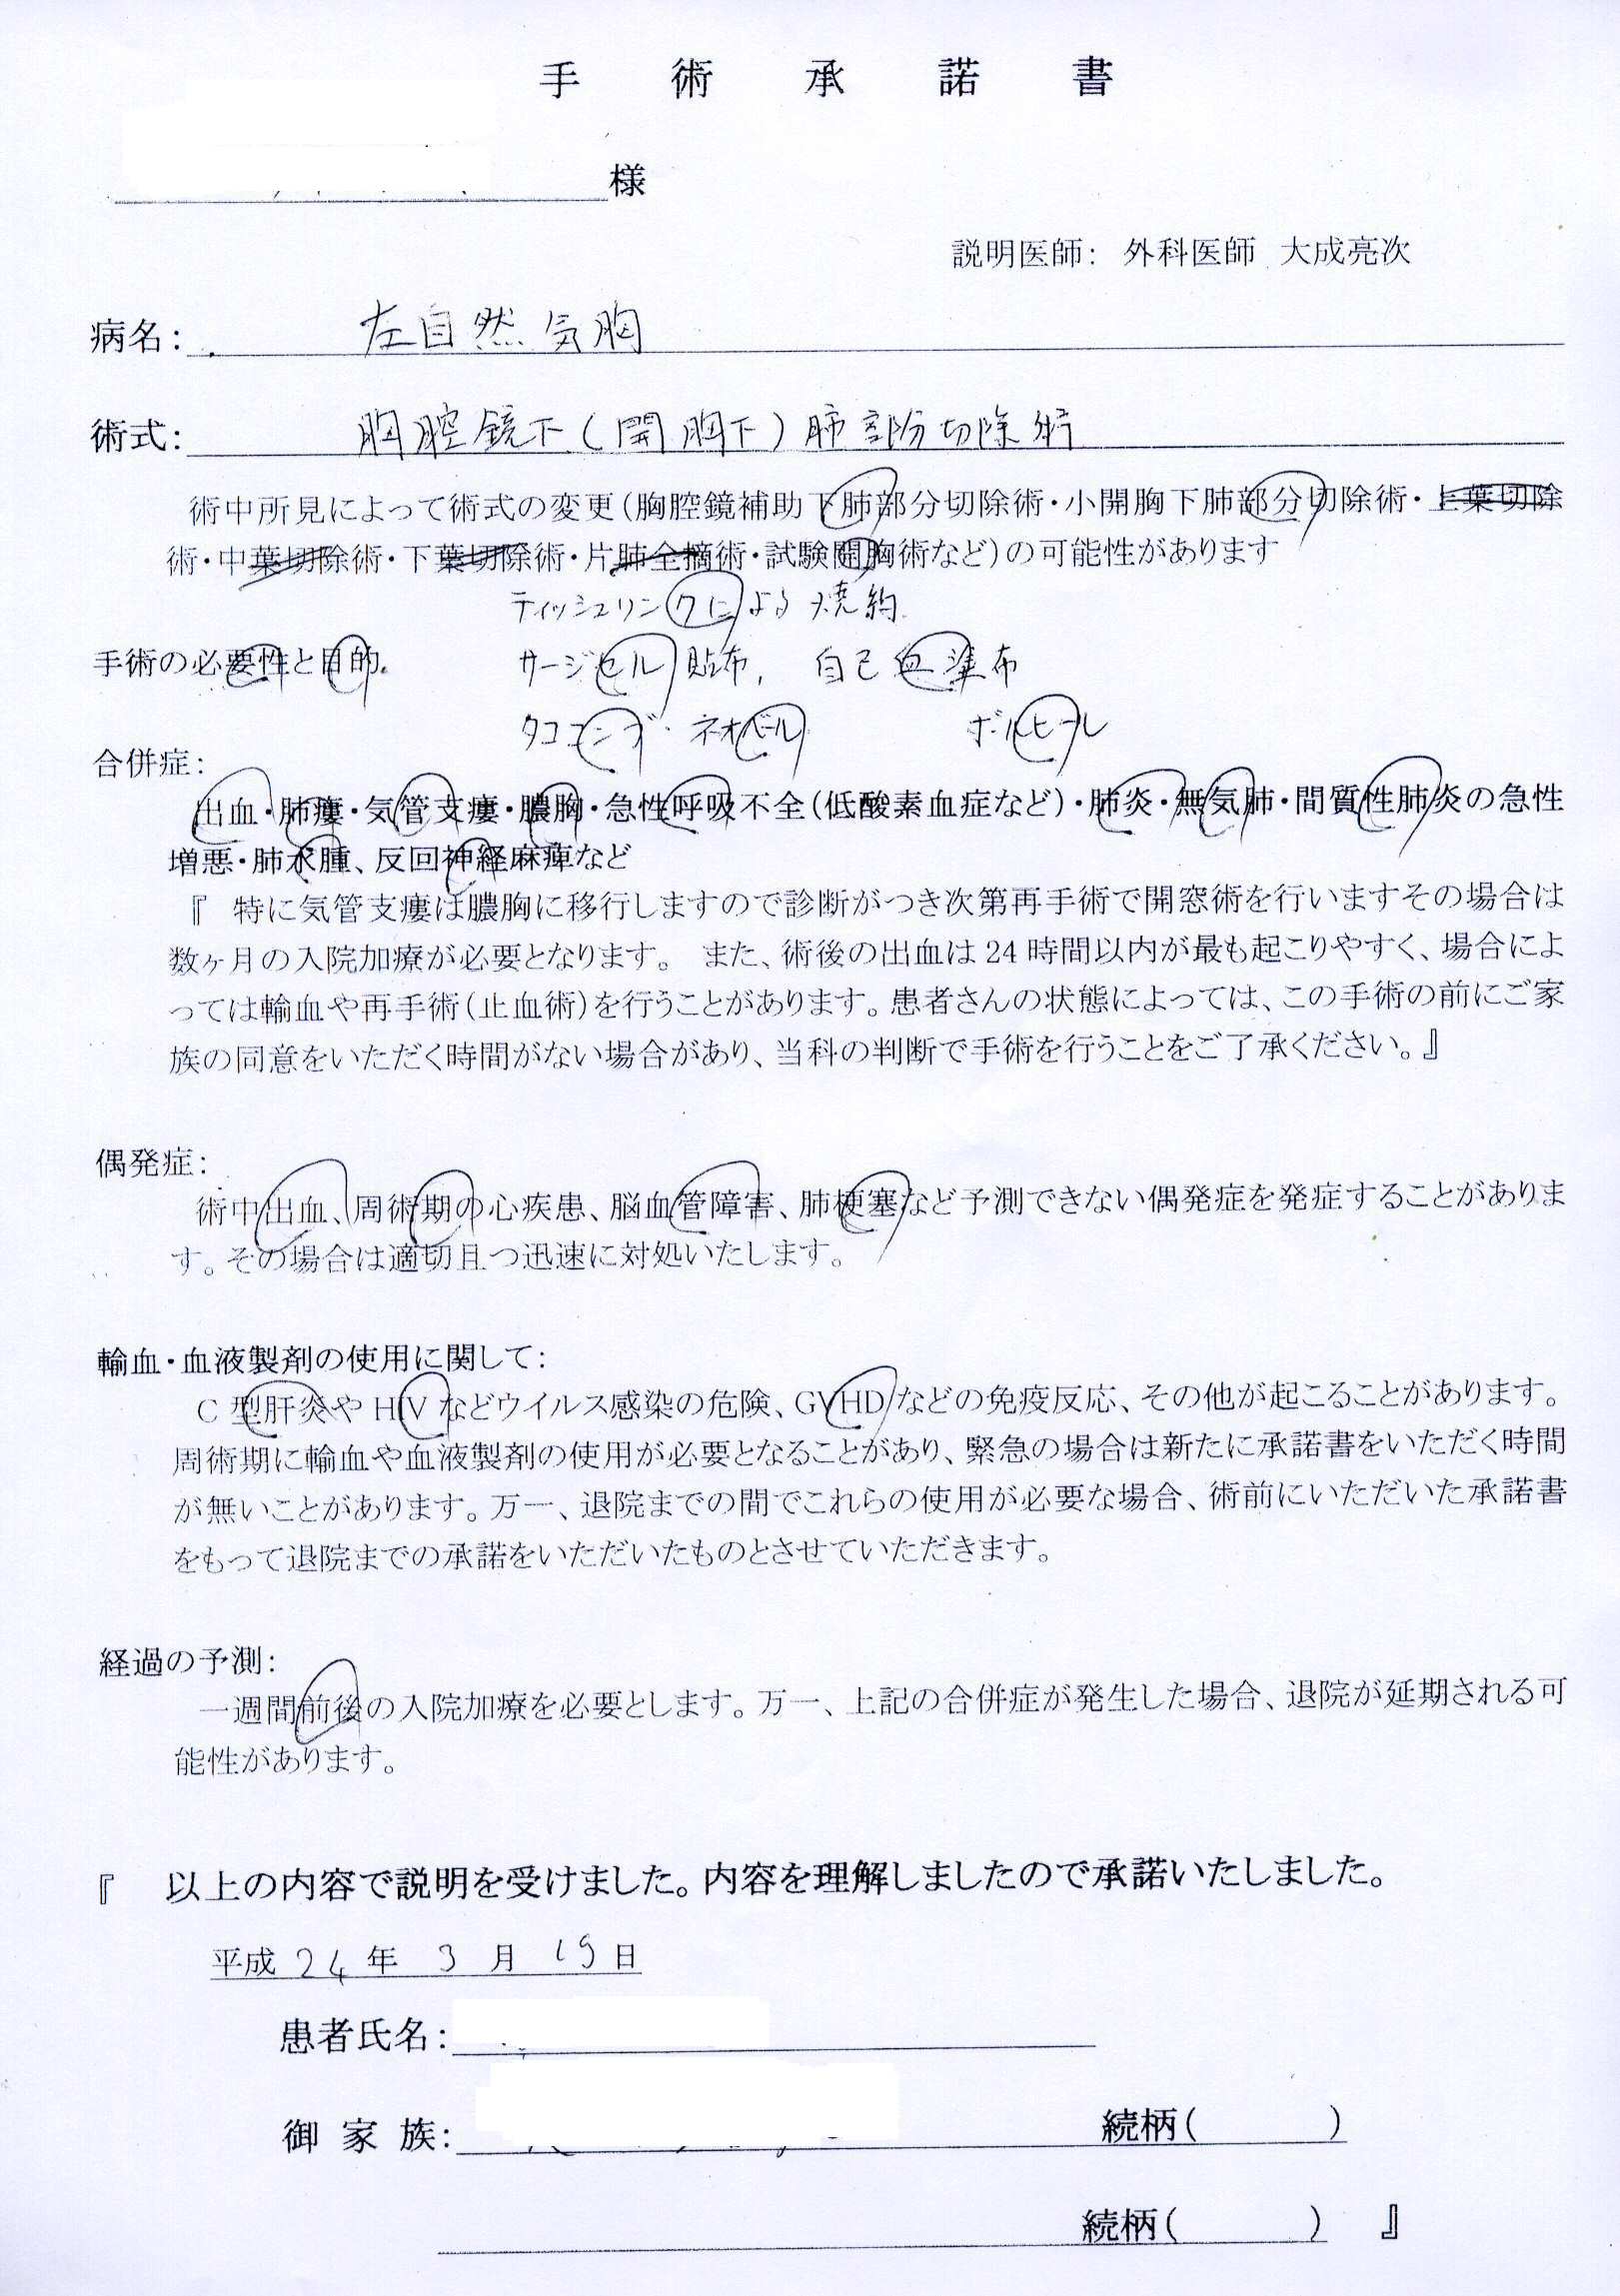 手術承諾書
様
説明医師: 外科医師 大成亮次
病名: 左自然気胸
術式: 胸腔鏡下(開胸下)肺部分切除術
術中所見によって術式の変更(胸腔鏡補助下肺部分切除術・小開胸下肺部分切除術・上葉切除
術・中葉切除術・下葉切除術・片肺全摘術・試験開胸術など)の可能性があります
ティッシュリンクによる焼約
手術の必要性と目的. サージセル貼布, 自己血塗布
タココンブ・ネオベール ボルヒール
合併症:
出血・肺瘻・気管支瘻・膿胸・急性呼吸不全(低酸素血症など)・肺炎・無気肺・間質性肺炎の急性
増悪・肺水腫、反回神経麻痺など
『 特に気管支瘻は膿胸に移行しますので診断がつき次第再手術で開窓術を行いますその場合は
数ヶ月の入院加療が必要となります。 また、術後の出血は24時間以内が最も起こりやすく、場合によ
っては輸血や再手術(止血術)を行うことがあります。患者さんの状態によっては、この手術の前にご家
族の同意をいただく時間がない場合があり、当科の判断で手術を行うことをご了承ください。』
偶発症:
術中出血、周術期の心疾患、脳血管障害、肺梗塞など予測できない偶発症を発症することがありま
す。その場合は適切且つ迅速に対処いたします。
輸血・血液製剤の使用に関して:
C型肝炎やHIVなどウイルス感染の危険、GVHDなどの免疫反応、その他が起こることがあります。
周術期に輸血や血液製剤の使用が必要となることがあり、緊急の場合は新たに承諾書をいただく時間
が無いことがあります。万一、退院までの間でこれらの使用が必要な場合、術前にいただいた承諾書
をもって退院までの承諾をいただいたものとさせていただきます。
経過の予測:
一週間前後の入院加療を必要とします。万一、上記の合併症が発生した場合、退院が延期される可
能性があります。
『 以上の内容で説明を受けました。内容を理解しましたので承諾いたしました。
平成 24 年 3 月 19 日
患者氏名:
御家族: 続柄( )
続柄( ) 』